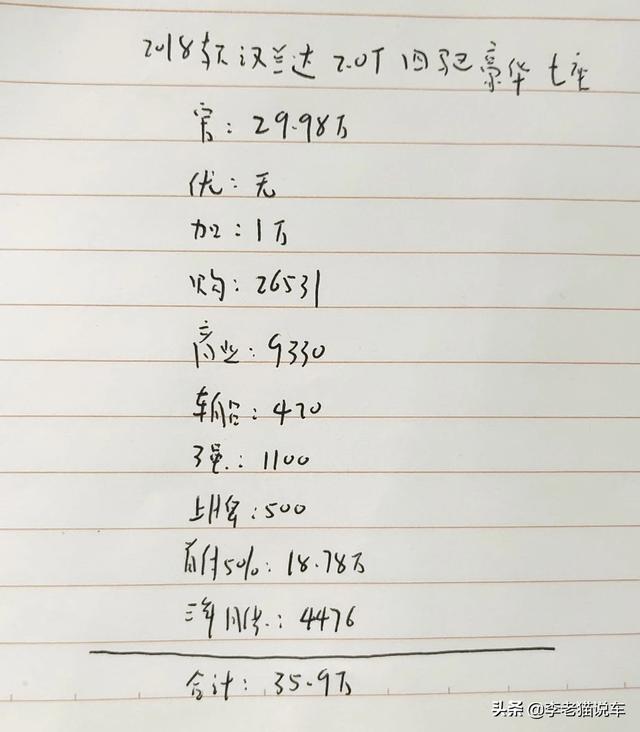 2018款汉兰达 2.0T 四驱豪华 七座
官：29.98万
优：无
加：1万
购：26531
商业：9330
车船：420
强：1100
上牌：500
首付50%：18.78万
三年月供：4476
合计：35.9万
头条 @李老猫说车